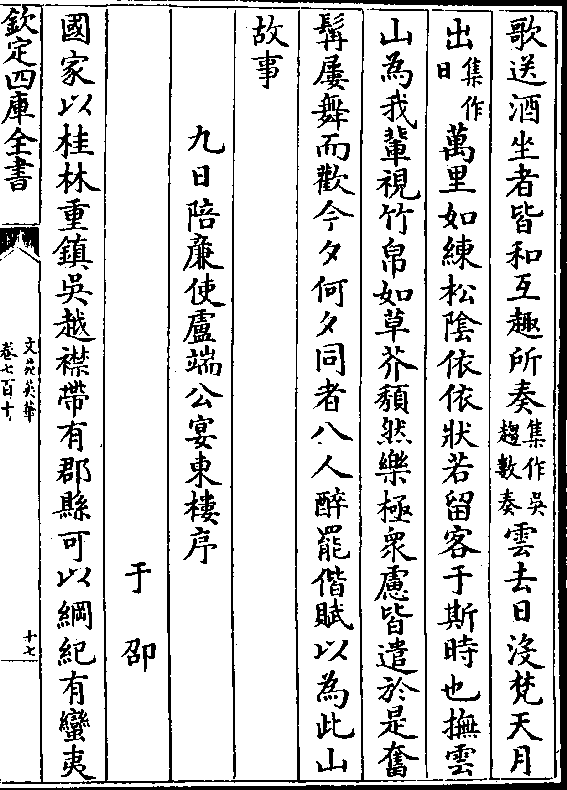 歌送酒坐者皆和互趣所奏集作吳趨數奏雲去日沒梵天月
出集作日萬里如練松陰依依狀若留客于斯時也撫雲
山為我輩視竹帛如草芥頹然樂極衆慮皆遣於是奮
髯屢舞而歡今夕何夕同者八人醉罷偕賦以為此山
故事
九日陪廉使盧端公宴東樓序
于邵
國家以桂林重鎮吳越襟帶有郡縣可以綱紀有蠻夷
欽定四庫全書
文苑英華
卷七百十
十七